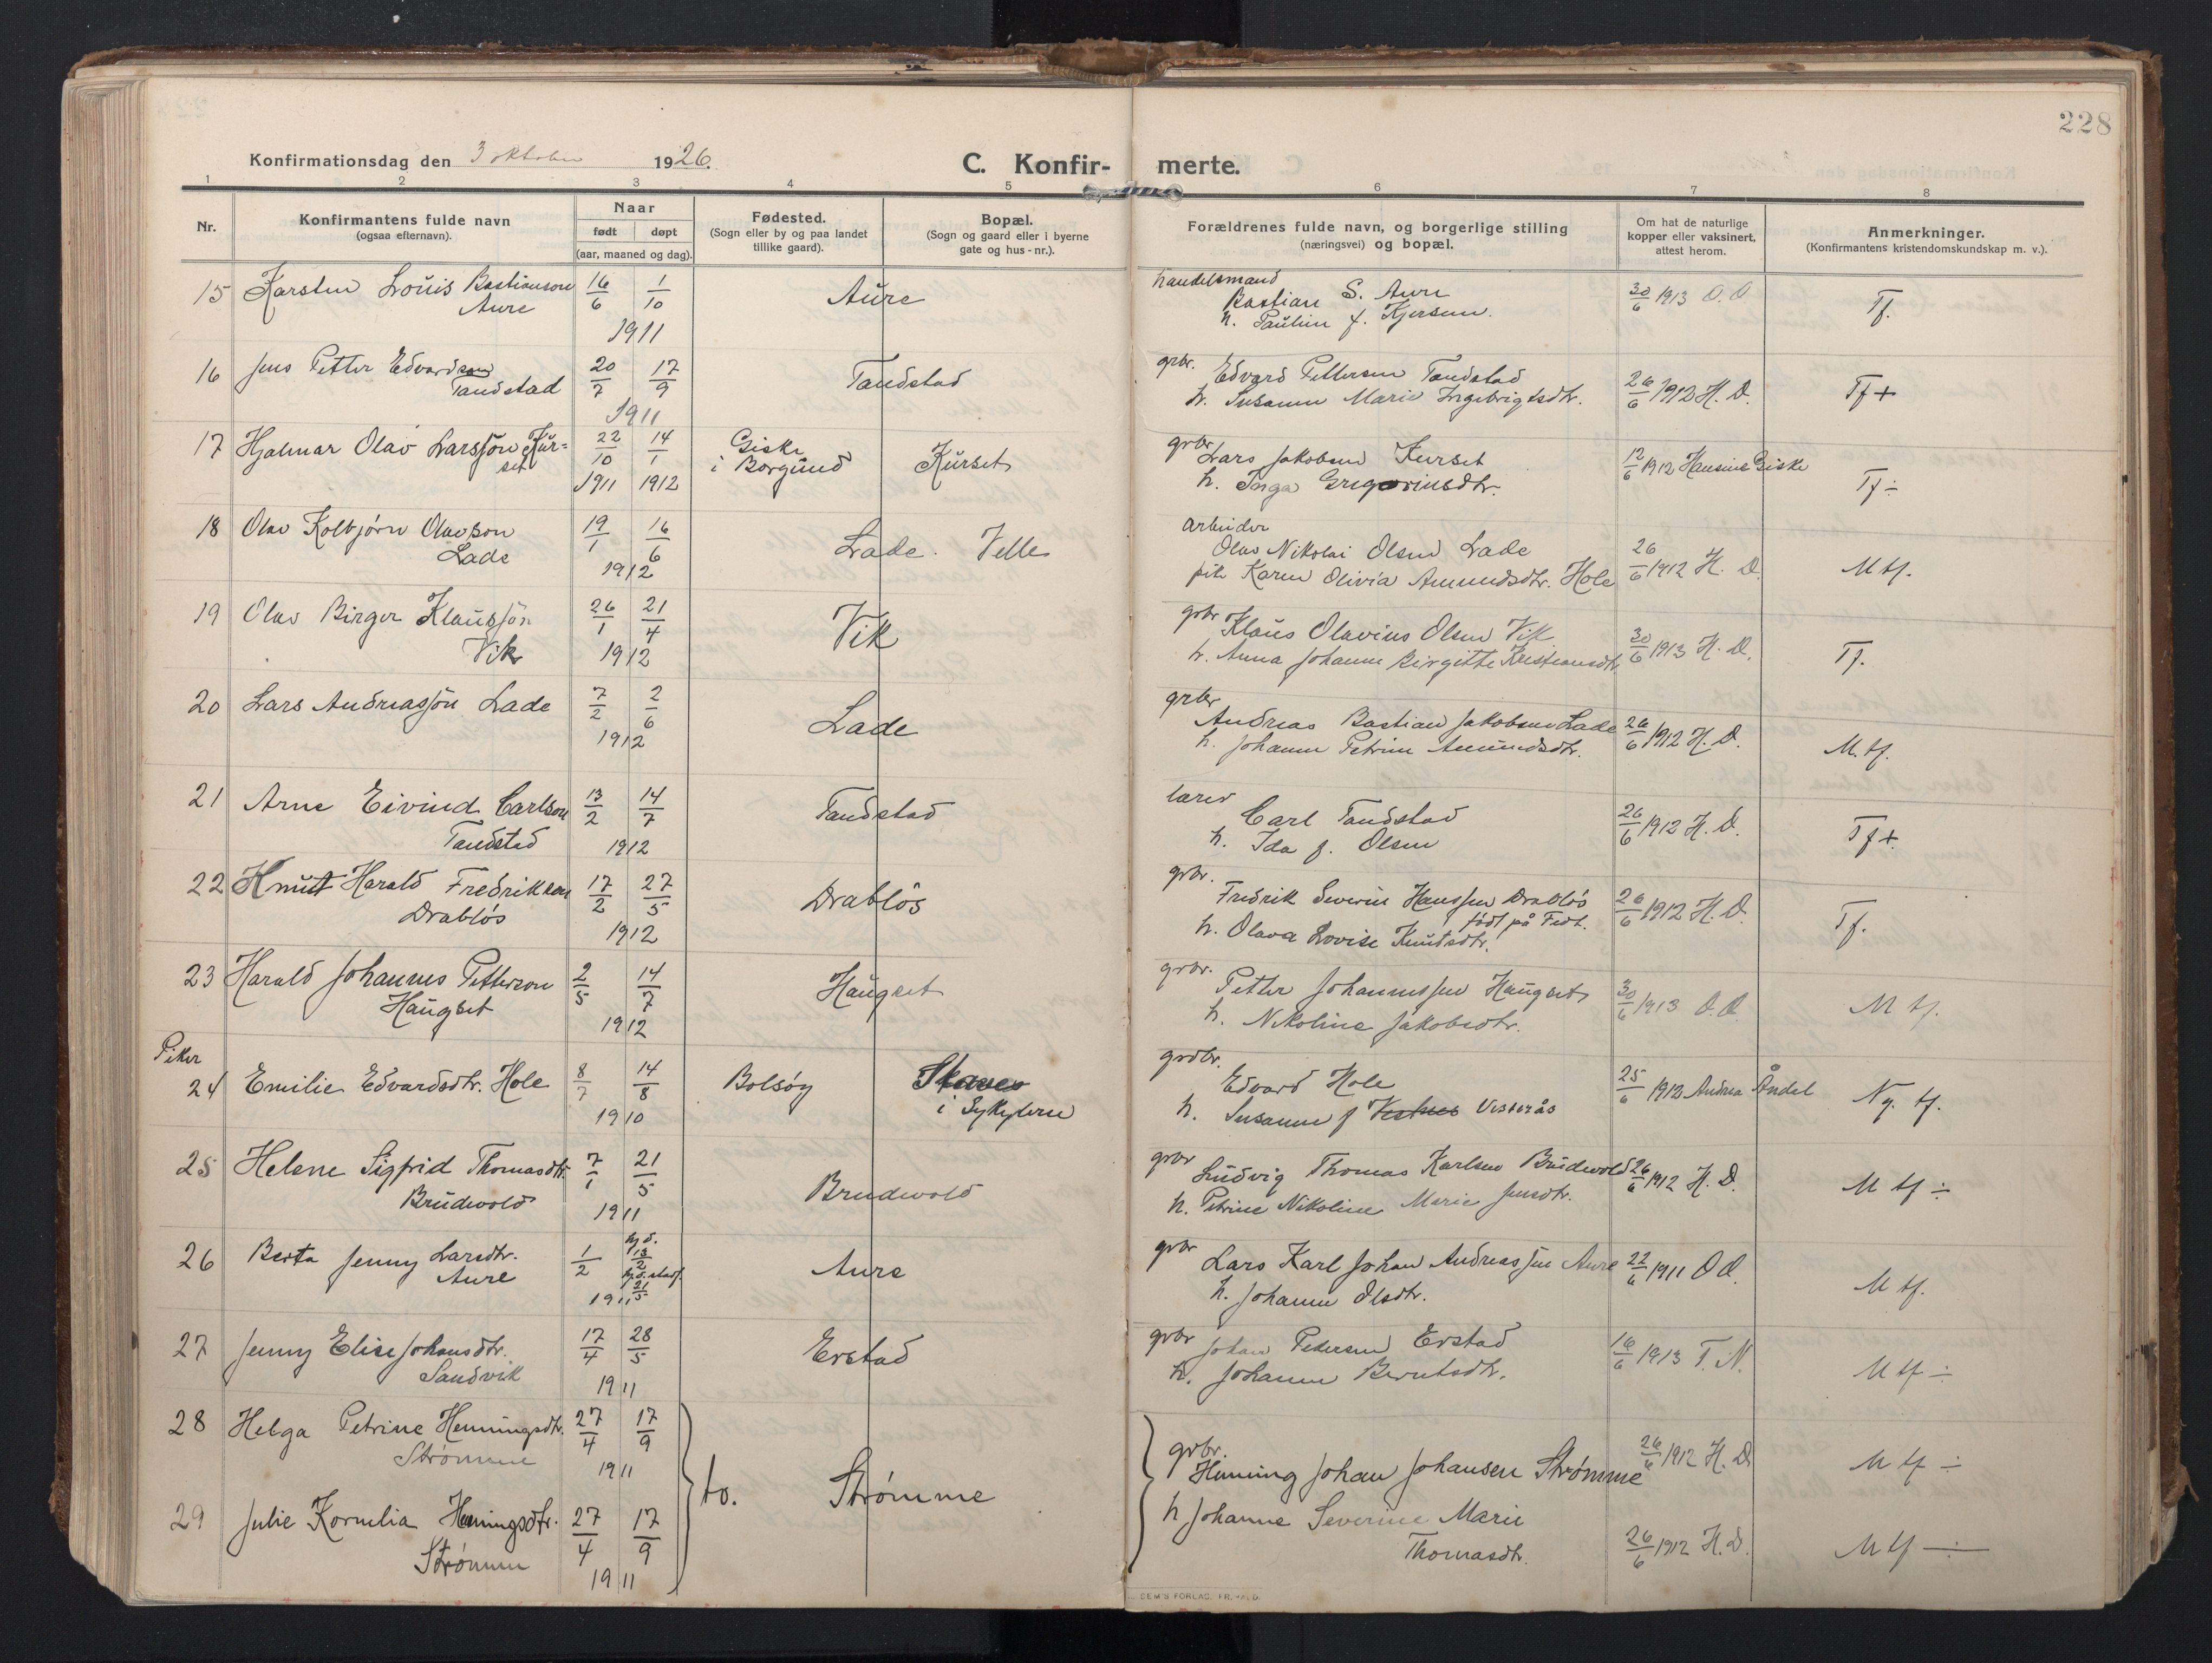 228
Konfirmationsdag den 3 oktober 1926.
C. Konfirmerte.
1 2 3 4 5 6 7 8
Nr.
Konfirmantens fulde navn
(ogsaa efternavn).
Naar
født døpt
(aar, maaned og dag).
Fødested.
(Sogn eller by og paa landet
tillike gaard).
Bopæl.
(Sogn og gaard eller i byerne
gate og hus-nr.).
Forældrenes fulde navn, og borgerlige stilling
(næringsvei) og bopæl.
Om hat de naturlige
kopper eller vaksinert,
attest herom.
Anmerkninger.
(Konfirmantens kristendomskundskap m. v.).
15 Karsten Louis Bastianson 16/6 1/10 Aure handelsmand
Aure 1911 Bastian S. Aure 30/6 1913 O. O. Tf.
h. Pauline f. Kjersem.
16 Jens Petter Edvardson 20/7 17/9 Tandstad grbr. Edvard Pettersen Tandstad
Tandstad 1911 h. Susanne Marie Ingebrigtsdtr. 26/6 1912 H. D. Tf +
17 Hjalmar Olav Larssøn Kur= 22/10 14/1 Giske grbr. Lars Jakobsen Kurset 12/6 1912 Hansine Giske
set 1911 1912 i Borgund Kurset h. Inga Gregoriusdtr. Tf ÷
18 Olav Kolbjørn Olavson 19/1 16/6 Lade. Velle arbeider
Lade 1912 Olav Nikolai Olsen Lade 26/6 1912 H. D. M tf.
pike Karen Olivia Amundsdtr. Hole
19 Olav Birger Klaussøn 26/1 21/4 Vik grbr Klaus Olavius Olsen Vik 30/6 1913 H. D. Tf.
Vik 1912 h. Anna Johanne Birgitte Kristiansdtr
20 Lars Andreassøn Lade 7/2 2/6 Lade grbr
1912 Andreas Bastian Jakobsen Lade 26/6 1912 H. D. M. tf.
h. Johanne Petrine Amundsdtr.
21 Arne Eivind Carlson 13/2 14/7 Tandstad lærer
Tandstad 1912 Carl Tandstad 26/6 1912 H. D. Tf +.
h. Ida f. Olsen
22 Knut Harald Fredrikson 17/2 27/5 Drabløs grbr.
Drabløs 1912 Fredrik Severin Hanssen Drabløs 26/6 1912 H. D. Tf.
født på Fedt.
h. Olava Lovise Knutsdtr.
23 Harald Johannes Petterson 2/5 14/7 Haugset grbr.
Haugset 1912 Petter Johannessen Haugset 30/6 1913 O. O. M tf.
h. Nikoline Jakobsdtr.
Piker
24 Emilie Edvardsdtr. Hole 8/7 14/8 Bolsøy i Sykylven grdbr.
1910 Edvard Hole 25/6 1912 Andrea Åndal Ng. tf.
h. Susanne f Vestnes Vesterås
25 Helene Sigfrid Thomasdtr. 7/1 21/5 Brudevold grbr
Brudevold 1911 Ludvig Thomas Karlsen Brudevold 26/6 1912 H. D. M tf ÷
h. Petrine Nikoline Marie Jensdtr.
26 Berta Jenny Larsdtr. 1/2 hj. d. 13/2 Aure grbr
Aure hj. d. stadf. 21/5 1911 Lars Karl Johan Andreassen Aure 22/6 1911 O O. M tf.
h. Johanne Olsdtr.
27 Jenny Elise Johansdtr. 17/4 28/5 Erstad grbr
Sandvik 1911 Johan Petersen Erstad 16/6 1913 T. N. M tf ÷
h. Johanne Berntsdtr.
28 Helga Petrine Henningsdtr. 27/4 17/9 grbr.
Strømme 1911 to. Strømme Henning Johan Johansen Strømme 26/6 1912 H. D. M tf ÷
29 Julie Kornelia Henningsdtr. 27/4 17/9 h Johanne Severine Marie
Strømme 1911 Thomasdtr. 26/6 1912 H. D. M tf ÷